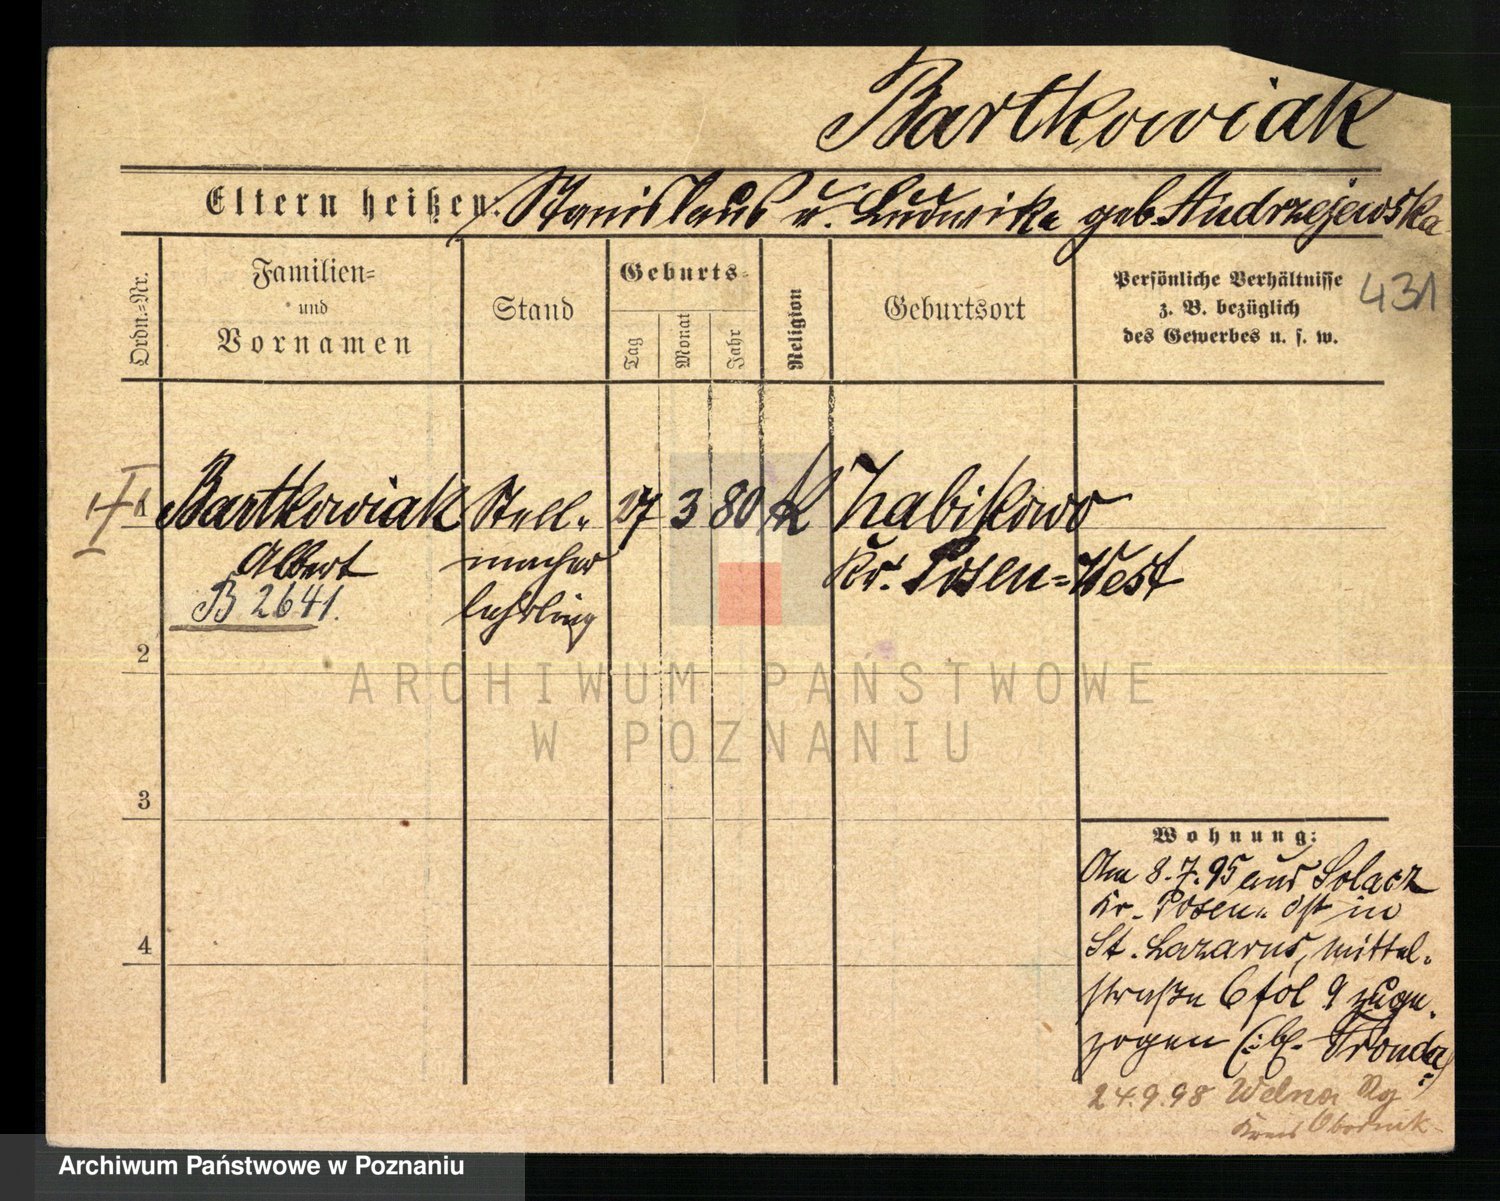 Bartkowiak
Eltern heißen: Stanislaus u. Ludwika geb. Andrzejewska
431
Ordn.=Nr.
Familien=
und
Vornamen
Stand
Geburts=
Tag
Monat
Jahr
Religion
Geburtsort
Persönliche Verhältnisse
z. B. bezüglich
des Gewerbes u. s. w.
1 Bartkowiak Stell= 27 3 80 K Zabikowo
Albert macher Kr. Posen=West
B 2641. lehrling
2
ARCHIWUM PAŃSTWOWE
W POZNANIU
3
4
Wohnung:
Am 8.7.95 aus Solacz
Kr. Posen=Ost in
St. Lazarus, Mittel=
straße 6 fol 9 zuge=
zogen (: b.
24.9.98 Welna
Kreis Obornik
Archiwum Państwowe w Poznaniu